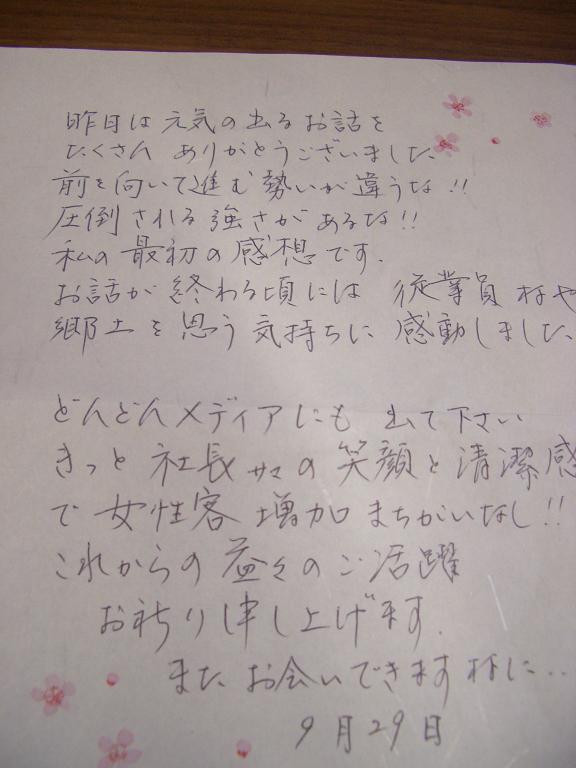 昨日は元気の出るお話を
たくさん ありがとうございました
前を向いて進む勢いが違うな!!
圧倒される強さがあるな!!
私の最初の感想です.
お話が終わる頃には 従業員様や
郷土を思う気持ちに 感動しました、
どんどんメディアにも 出て下さい
きっと 社長サマの笑顔と清潔感
で女性客 増加 まちがいなし!!
これからの益々のご活躍
お祈り申し上げます.
また お会いできます様に...
9月29日